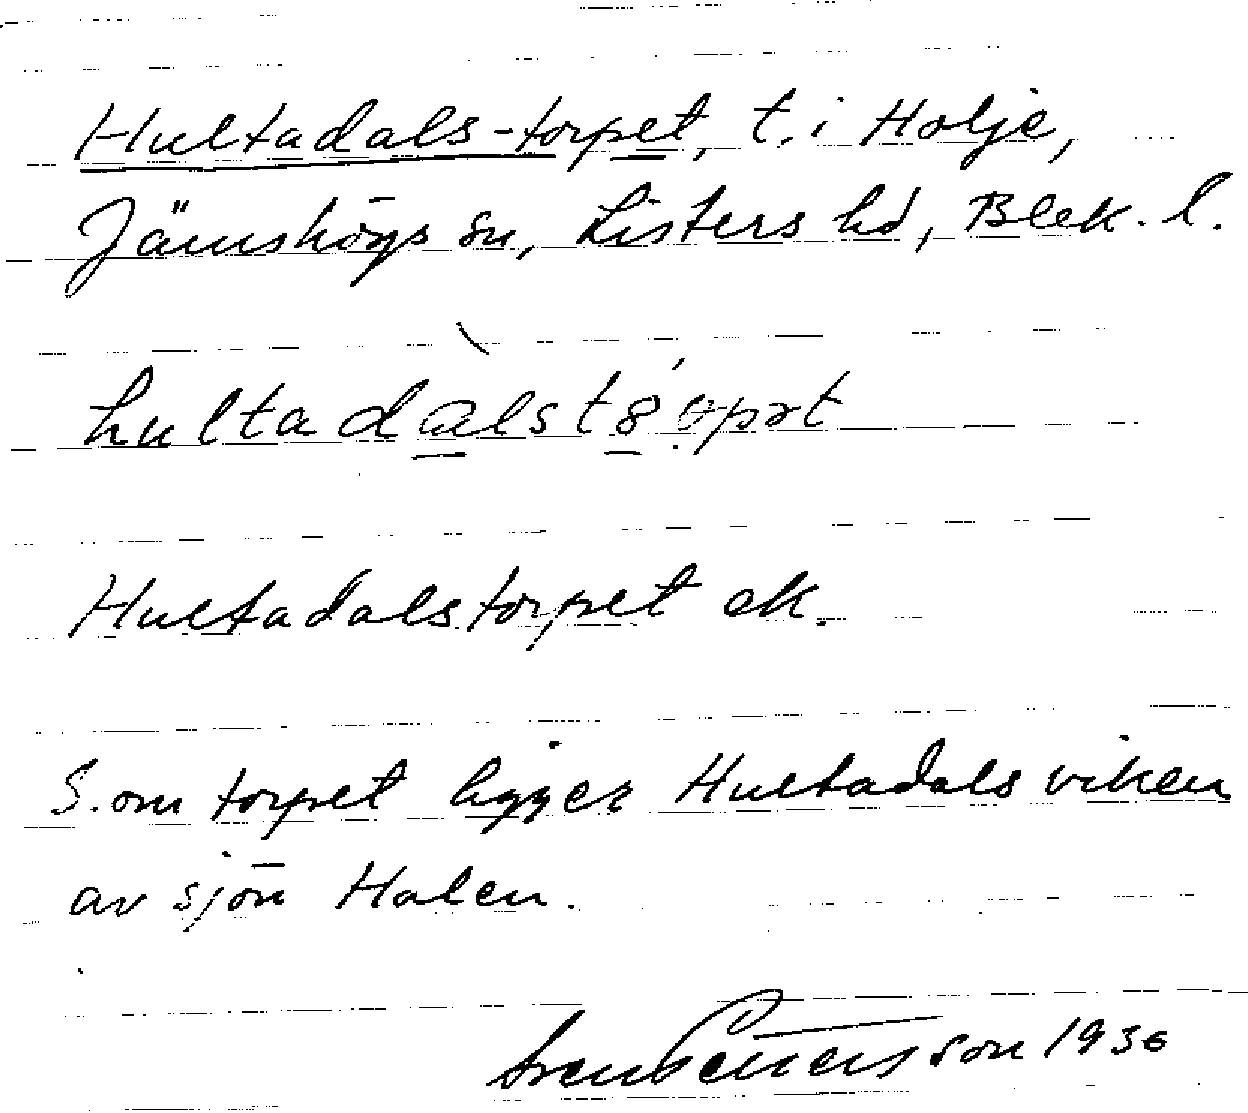 Hultadals-torpet, t. i Holje,
Jämshögs sn, Listers hd, Blek. l.
Hultadalstorpet ek.
S. om torpet ligger Hultadalsviken
av sjön Halen.
Sven Pettersson 1936